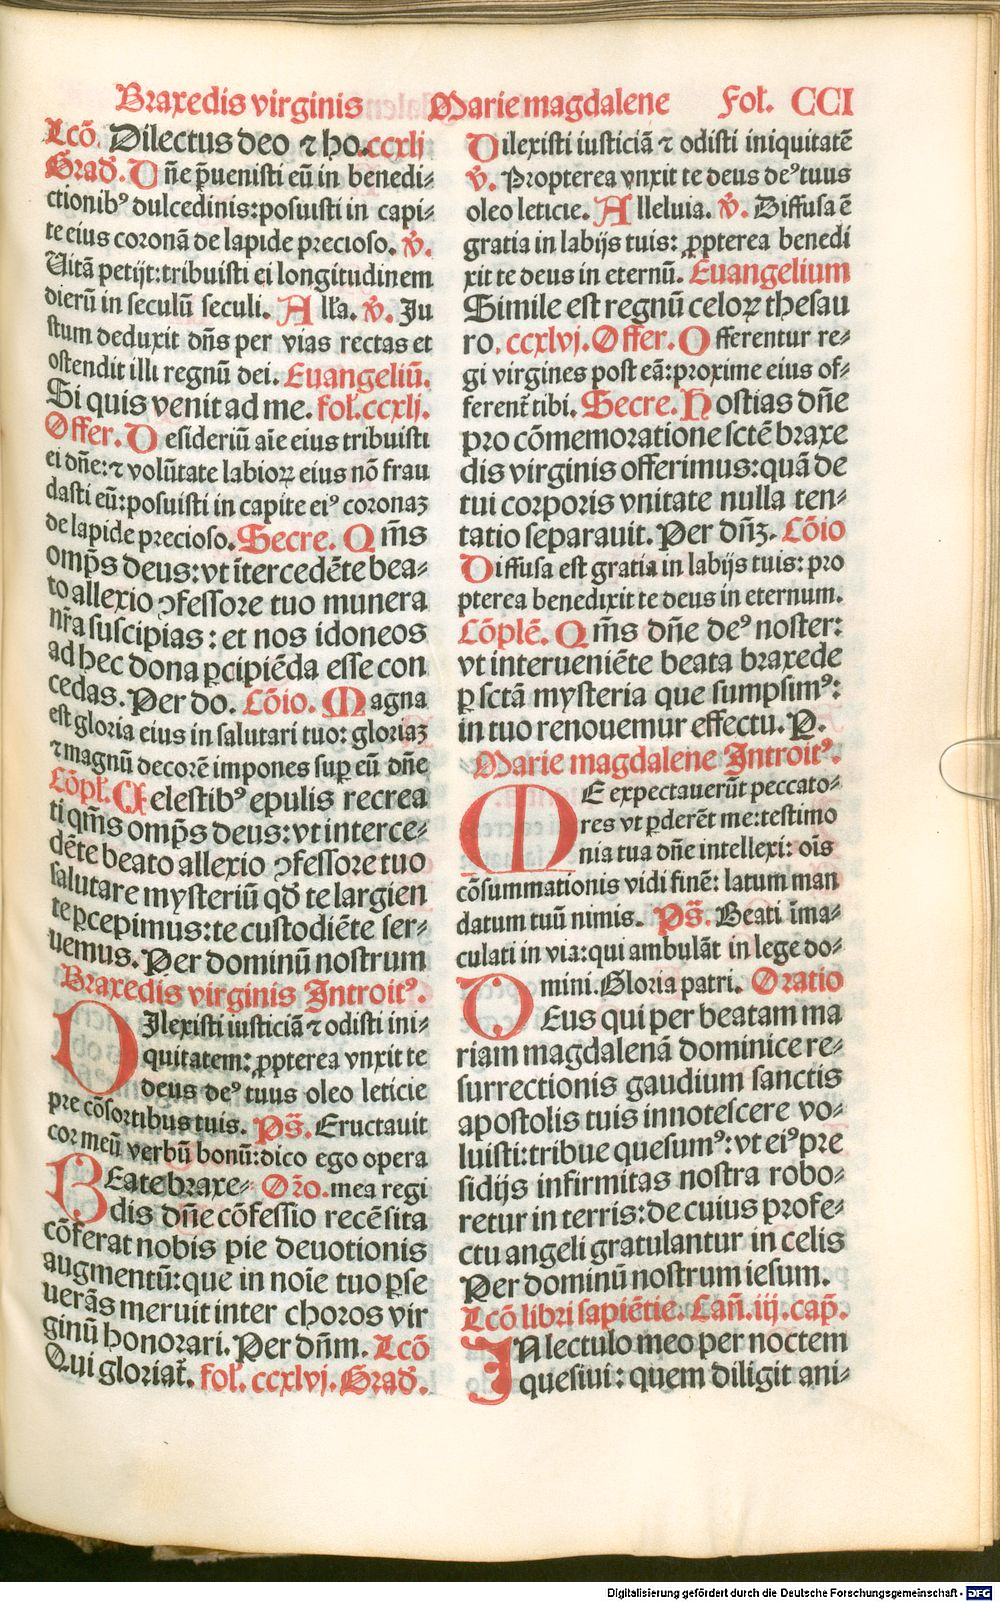 Braxedis virginis Marie magdalene Fol. CCI
Lcō. Dilectus deo ⁊ ho. ccxlj
Grad̄. Dñe p̄uenisti eū in benedi⸗
ctionibꝰ dulcedinis: posuisti in capi⸗
te eius coronā de lapide precioso. v̄.
Uitā petijt: tribuisti ei longitudinem
dierū in seculū seculi. Alla. v̄. Ju
stum deduxit dn̄s per vias rectas et
ostendit illi regnū dei. Euangeliū.
Si quis venit ad me. fol. ccxlj.
Offer. Desideriū aīe eius tribuisti
ei dn̄e: ⁊ volūtate labioꝝ eius nō frau
dasti eū: posuisti in capite eiꝰ coronaꝫ
de lapide precioso. Secre. Qm̄s
omp̄s deus: vt ītercedēte bea⸗
to allexio ꝯfessore tuo munera
nr̄a suscipias: et nos idoneos
ad hec dona ꝑcipiēda esse con
cedas. Per do. Cōio. Magna
est gloria eius in salutari tuo: gloriaꝫ
⁊ magnū decorē impones suꝑ eū dn̄e
Cōpl. Celestibꝰ epulis recrea
ti qm̄s omp̄s deus: vt interce⸗
dēte beato allexio ꝯfessore tuo
salutare mysteriū qd̄ te largien
te ꝑcepimus: te custodiēte ser⸗
uemus. Per dominū nostrum
Braxedis virginis Introitꝰ.
DJlexisti iusticiā ⁊ odisti ini⸗
quitatem: ꝓpterea vnxit te
deus deꝰ tuus oleo leticie
pre cōsortibus tuis. Ps̄. Eructauit
cor meū verbū bonū: dico ego opera
BEate braxe⸗ Or̄o. mea regi
dis dn̄e cōfessio recēsita
cōferat nobis pie deuotionis
augmentū: que in noīe tuo ꝑse
uerās meruit inter choros vir
ginū honorari. Per dn̄m. Lcō
Qui gloriat̄. fol. ccxlvj. Grad̄.
Dilexisti iusticiā ⁊ odisti iniquitatē
v̄. Propterea vnxit te deus deꝰ tuus
oleo leticie. Alleluia. v̄. Diffusa ē
gratia in labijs tuis: ꝓpterea benedi
xit te deus in eternū. Euangelium
Simile est regnū celoꝝ thesau
ro. ccxlvj. Offer. Offerentur re⸗
gi virgines post eā: proxime eius of⸗
ferent̄ tibi. Secre. Hostias dn̄e
pro cōmemoratione sctē braxe
dis virginis offerimus: quā de
tui corporis vnitate nulla ten⸗
tatio separauit. Per dn̄ꝫ. Cōio
Diffusa est gratia in labijs tuis: pro
pterea benedixit te deus in eternum.
Cōplē. Qm̄s dn̄e deꝰ noster:
vt interueniēte beata braxede
ꝑ sctā mysteria que sumpsimꝰ:
in tuo renouemur effectu. P.
Marie magdalene Introitꝰ.
ME expectauerūt peccato⸗
res vt ꝑderēt me: testimo
nia tua dn̄e intellexi: oīs
cōsummationis vidi finē: latum man
datum tuū nimis. Ps̄. Beati īma⸗
culati in via: qui ambulāt in lege do⸗
mini. Gloria patri. Oratio
DEus qui per beatam ma
riam magdalenā dominice re⸗
surrectionis gaudium sanctis
apostolis tuis innotescere vo⸗
luisti: tribue quesumꝰ: vt eiꝰ pre
sidijs infirmitas nostra robo⸗
retur in terris: de cuius profe⸗
ctu angeli gratulantur in celis
Per dominū nostrum iesum.
Lcō libri sapiētie. Can̄. iij. cap̄.
IN lectulo meo per noctem
quesiui: quem diligit ani⸗
Digitalisierung gefördert durch die Deutsche Forschungsgemeinschaft - DFG